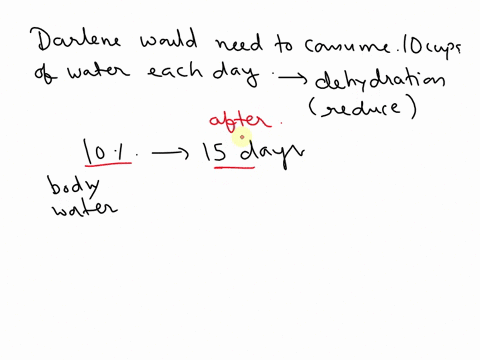 Darlene would need to consume. 10 cups
of water each day. → dehydration
(reduce)
after.
10%. → 15 days
body
water